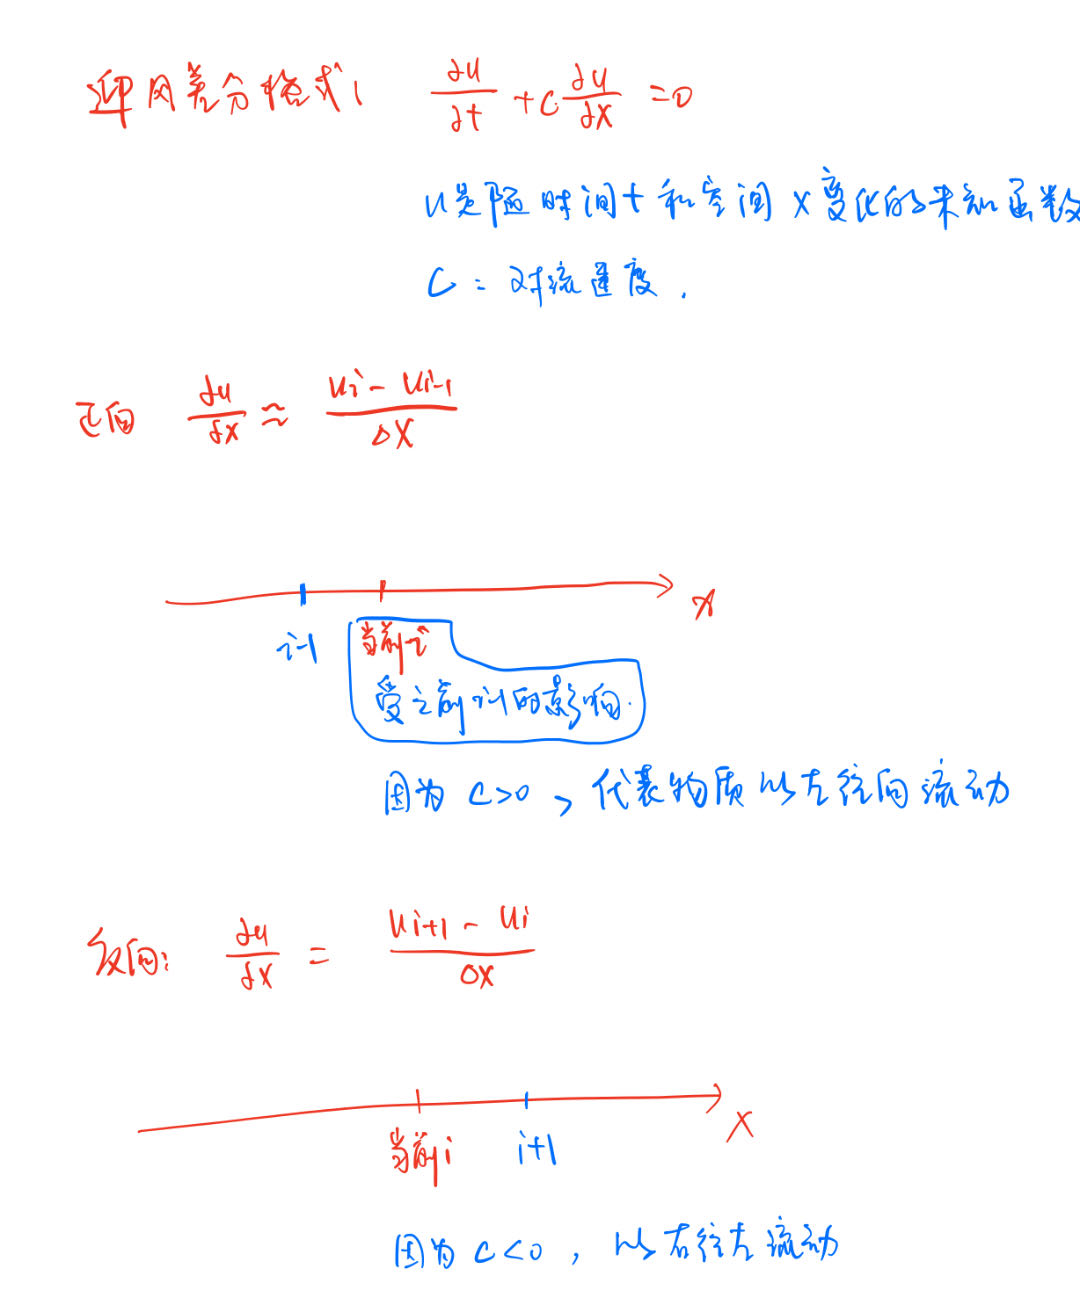 迎风差分格式: ∂u/∂t + c ∂u/∂x = 0
u是随时间t和空间x变化的未知函数
C: 对流速度.
正向 ∂u/∂x ≈ (u_i - u_{i-1})/Δx
x
i-1 当前i
受之前i-1的影响.
因为 C>0, 代表物质从左往向流动
反向: ∂u/∂x = (u_{i+1} - u_i)/Δx
x
当前i i+1
因为 C<0, 从右往左流动